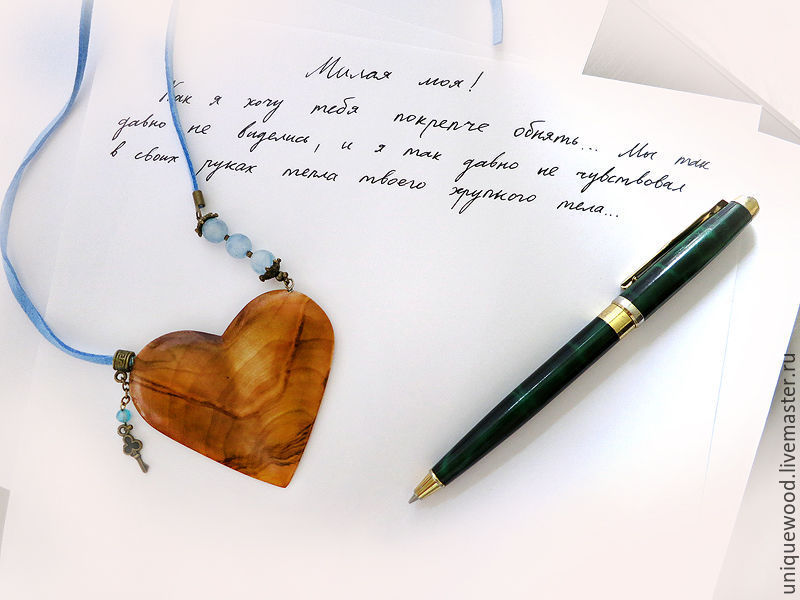 Милая моя!
Как я хочу тебя покрепче обнять... Мы так
давно не виделись, и я так давно не чувствовал
в своих руках тепла твоего хрупкого тела...
uniquewood.livemaster.ru